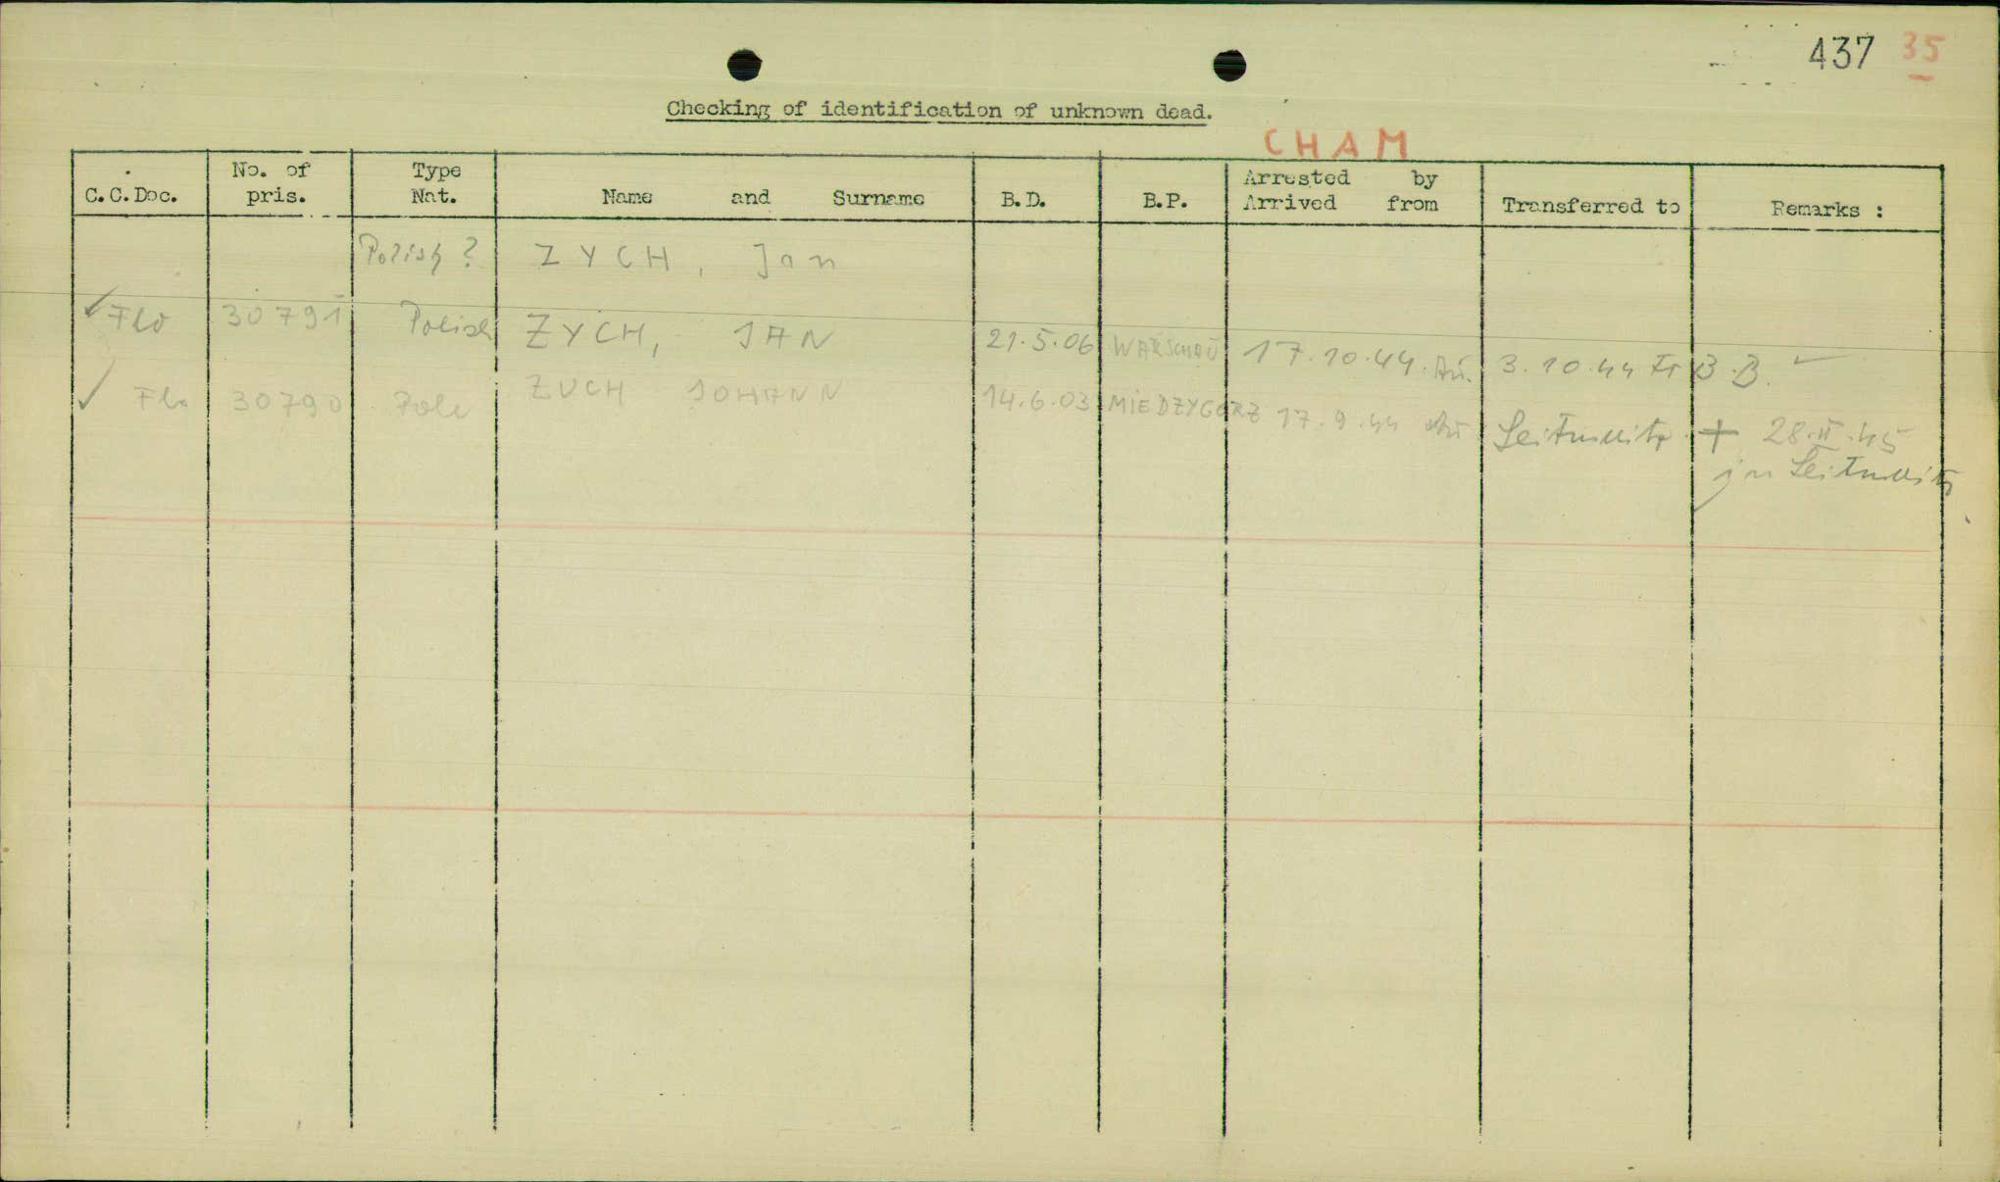 437 35
Checking of identification of unknown dead.
CHAM
C.C.Doc. No. of pris. Type Nat. Name and Surname B.D. B.P. Arrested by Arrived from Transferred to Remarks :
Polish ? ZYCH, Jan
✓ Flo 30791 Polish ZYCH, JAN 21.5.06 WARSCHAU 17.10.44. Au. 3.10.44 Fr B.B. ✓
✓ Flo 30790 Pole ZUCH JOHANN 14.6.03 MIEDZYGORZ 17.9.44 Au Leitmeritz + 28.II.45
in Leitmeritz